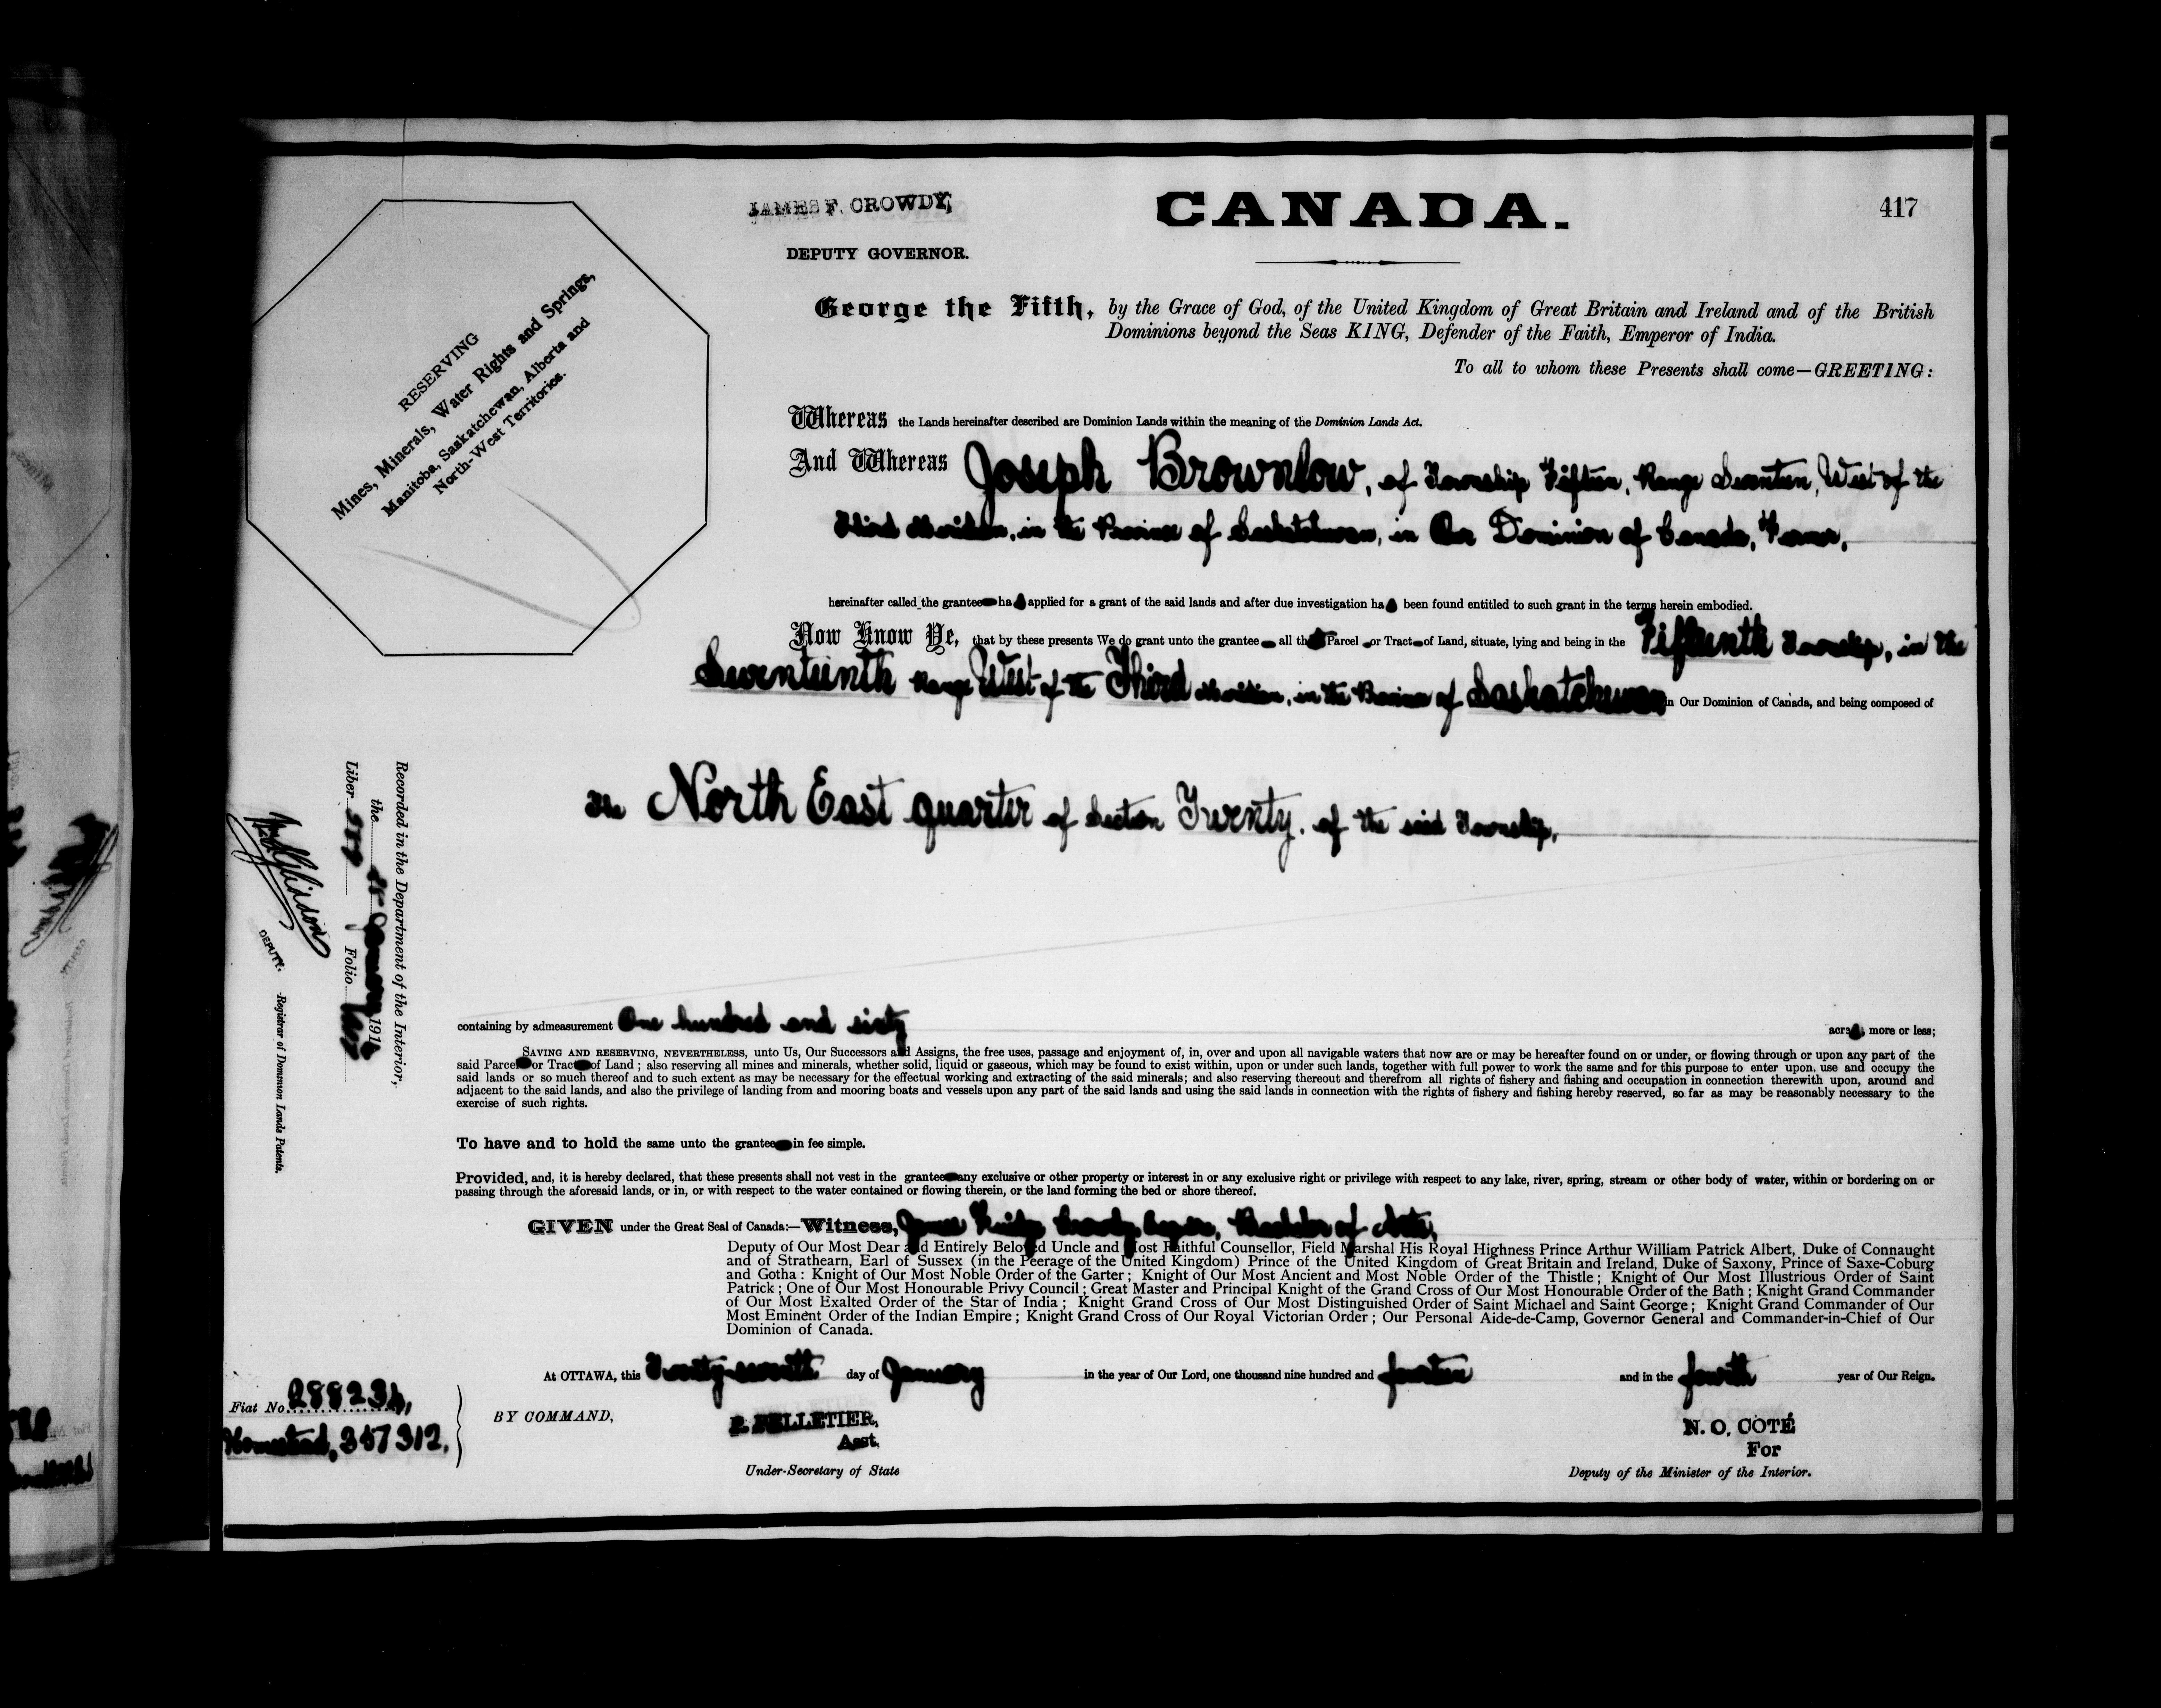 JAMES F. CROWDY,
DEPUTY GOVERNOR.
CANADA.
417
RESERVING
Mines, Minerals, Water Rights and Springs,
Manitoba, Saskatchewan, Alberta and
North-West Territories.
George the Fifth, by the Grace of God, of the United Kingdom of Great Britain and Ireland and of the British
Dominions beyond the Seas KING, Defender of the Faith, Emperor of India.
To all to whom these Presents shall come—GREETING:
Whereas the Lands hereinafter described are Dominion Lands within the meaning of the Dominion Lands Act.
And Whereas Joseph Brownlow, of Township Fifteen, Range Seventeen, West of the
Third Meridian, in the Province of Saskatchewan, in Our Dominion of Canada, Farmer,
hereinafter called the grantee ha applied for a grant of the said lands and after due investigation ha been found entitled to such grant in the terms herein embodied.
Now Know Ye, that by these presents We do grant unto the grantee all th Parcel or Tract of Land, situate, lying and being in the Fifteenth Township, in the
Seventeenth Range West of the Third Meridian, in the Province of Saskatchewan in Our Dominion of Canada, and being composed of
The North East quarter of Section Twenty, of the said Township,
containing by admeasurement One hundred and sixty acres, more or less;
SAVING AND RESERVING, NEVERTHELESS, unto Us, Our Successors and Assigns, the free uses, passage and enjoyment of, in, over and upon all navigable waters that now are or may be hereafter found on or under, or flowing through or upon any part of the
said Parcel or Tract of Land ; also reserving all mines and minerals, whether solid, liquid or gaseous, which may be found to exist within, upon or under such lands, together with full power to work the same and for this purpose to enter upon, use and occupy the
said lands or so much thereof and to such extent as may be necessary for the effectual working and extracting of the said minerals; and also reserving thereout and therefrom all rights of fishery and fishing and occupation in connection therewith upon, around and
adjacent to the said lands, and also the privilege of landing from and mooring boats and vessels upon any part of the said lands and using the said lands in connection with the rights of fishery and fishing hereby reserved, so far as may be reasonably necessary to the
exercise of such rights.
To have and to hold the same unto the grantee in fee simple.
Provided, and, it is hereby declared, that these presents shall not vest in the grantee any exclusive or other property or interest in or any exclusive right or privilege with respect to any lake, river, spring, stream or other body of water, within or bordering on or
passing through the aforesaid lands, or in, or with respect to the water contained or flowing therein, or the land forming the bed or shore thereof.
GIVEN under the Great Seal of Canada:—Witness, James Crowdy Esquire, Bachelor of Arts,
Deputy of Our Most Dear and Entirely Beloved Uncle and Most Faithful Counsellor, Field Marshal His Royal Highness Prince Arthur William Patrick Albert, Duke of Connaught
and of Strathearn, Earl of Sussex (in the Peerage of the United Kingdom) Prince of the United Kingdom of Great Britain and Ireland, Duke of Saxony, Prince of Saxe-Coburg
and Gotha : Knight of Our Most Noble Order of the Garter ; Knight of Our Most Ancient and Most Noble Order of the Thistle ; Knight of Our Most Illustrious Order of Saint
Patrick ; One of Our Most Honourable Privy Council ; Great Master and Principal Knight of the Grand Cross of Our Most Honourable Order of the Bath ; Knight Grand Commander
of Our Most Exalted Order of the Star of India ; Knight Grand Cross of Our Most Distinguished Order of Saint Michael and Saint George ; Knight Grand Commander of Our
Most Eminent Order of the Indian Empire ; Knight Grand Cross of Our Royal Victorian Order ; Our Personal Aide-de-Camp, Governor General and Commander-in-Chief of Our
Dominion of Canada.
At OTTAWA, this Twenty-seventh day of January in the year of Our Lord, one thousand nine hundred and fourteen and in the fourth year of Our Reign.
BY COMMAND,
P. PELLETIER,
Asst.
Under-Secretary of State
N. O. COTÉ
For
Deputy of the Minister of the Interior.
Recorded in the Department of the Interior,
the January 1914
Liber Folio
DEPUTY. Registrar of Dominion Lands Patents.
Fiat No. 288234,
Homestead, 357312,